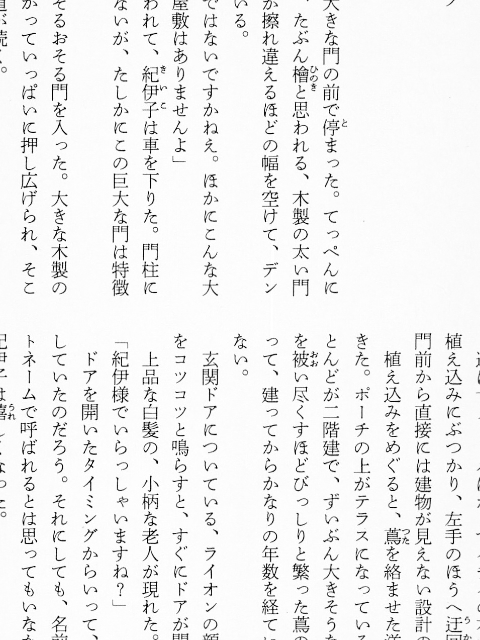 大きな門の前で停まった。てっぺんに
、たぶん檜と思われる、木製の太い門
が擦れ違えるほどの幅を空けて、デン
いる。
ではないですかねえ。ほかにこんな大
屋敷はありませんよ」
われて、紀伊子は車を下りた。門柱に
ないが、たしかにこの巨大な門は特徴
そるおそる門を入った。大きな木製の
がっていっぱいに押し広げられ、そこ
道が続く。
植え込みにぶつかり、左手のほうへ迂回
門前から直接には建物が見えない設計の
植え込みをめぐると、蔦を絡ませた洋
きた。ポーチの上がテラスになっている
とんどが二階建で、ずいぶん大きそうだ
を被い尽くすほどびっしりと繁った蔦の
って、建ってからかなりの年数を経てい
ない。
玄関ドアについている、ライオンの顔
をコツコツと鳴らすと、すぐにドアが開
上品な白髪の、小柄な老人が現れた。
「紀伊様でいらっしゃいますね？」
ドアを開いたタイミングからいって、
していたのだろう。それにしても、名前
トネームで呼ばれるとは思ってもいなか
紀伊子は嬉しくなった。